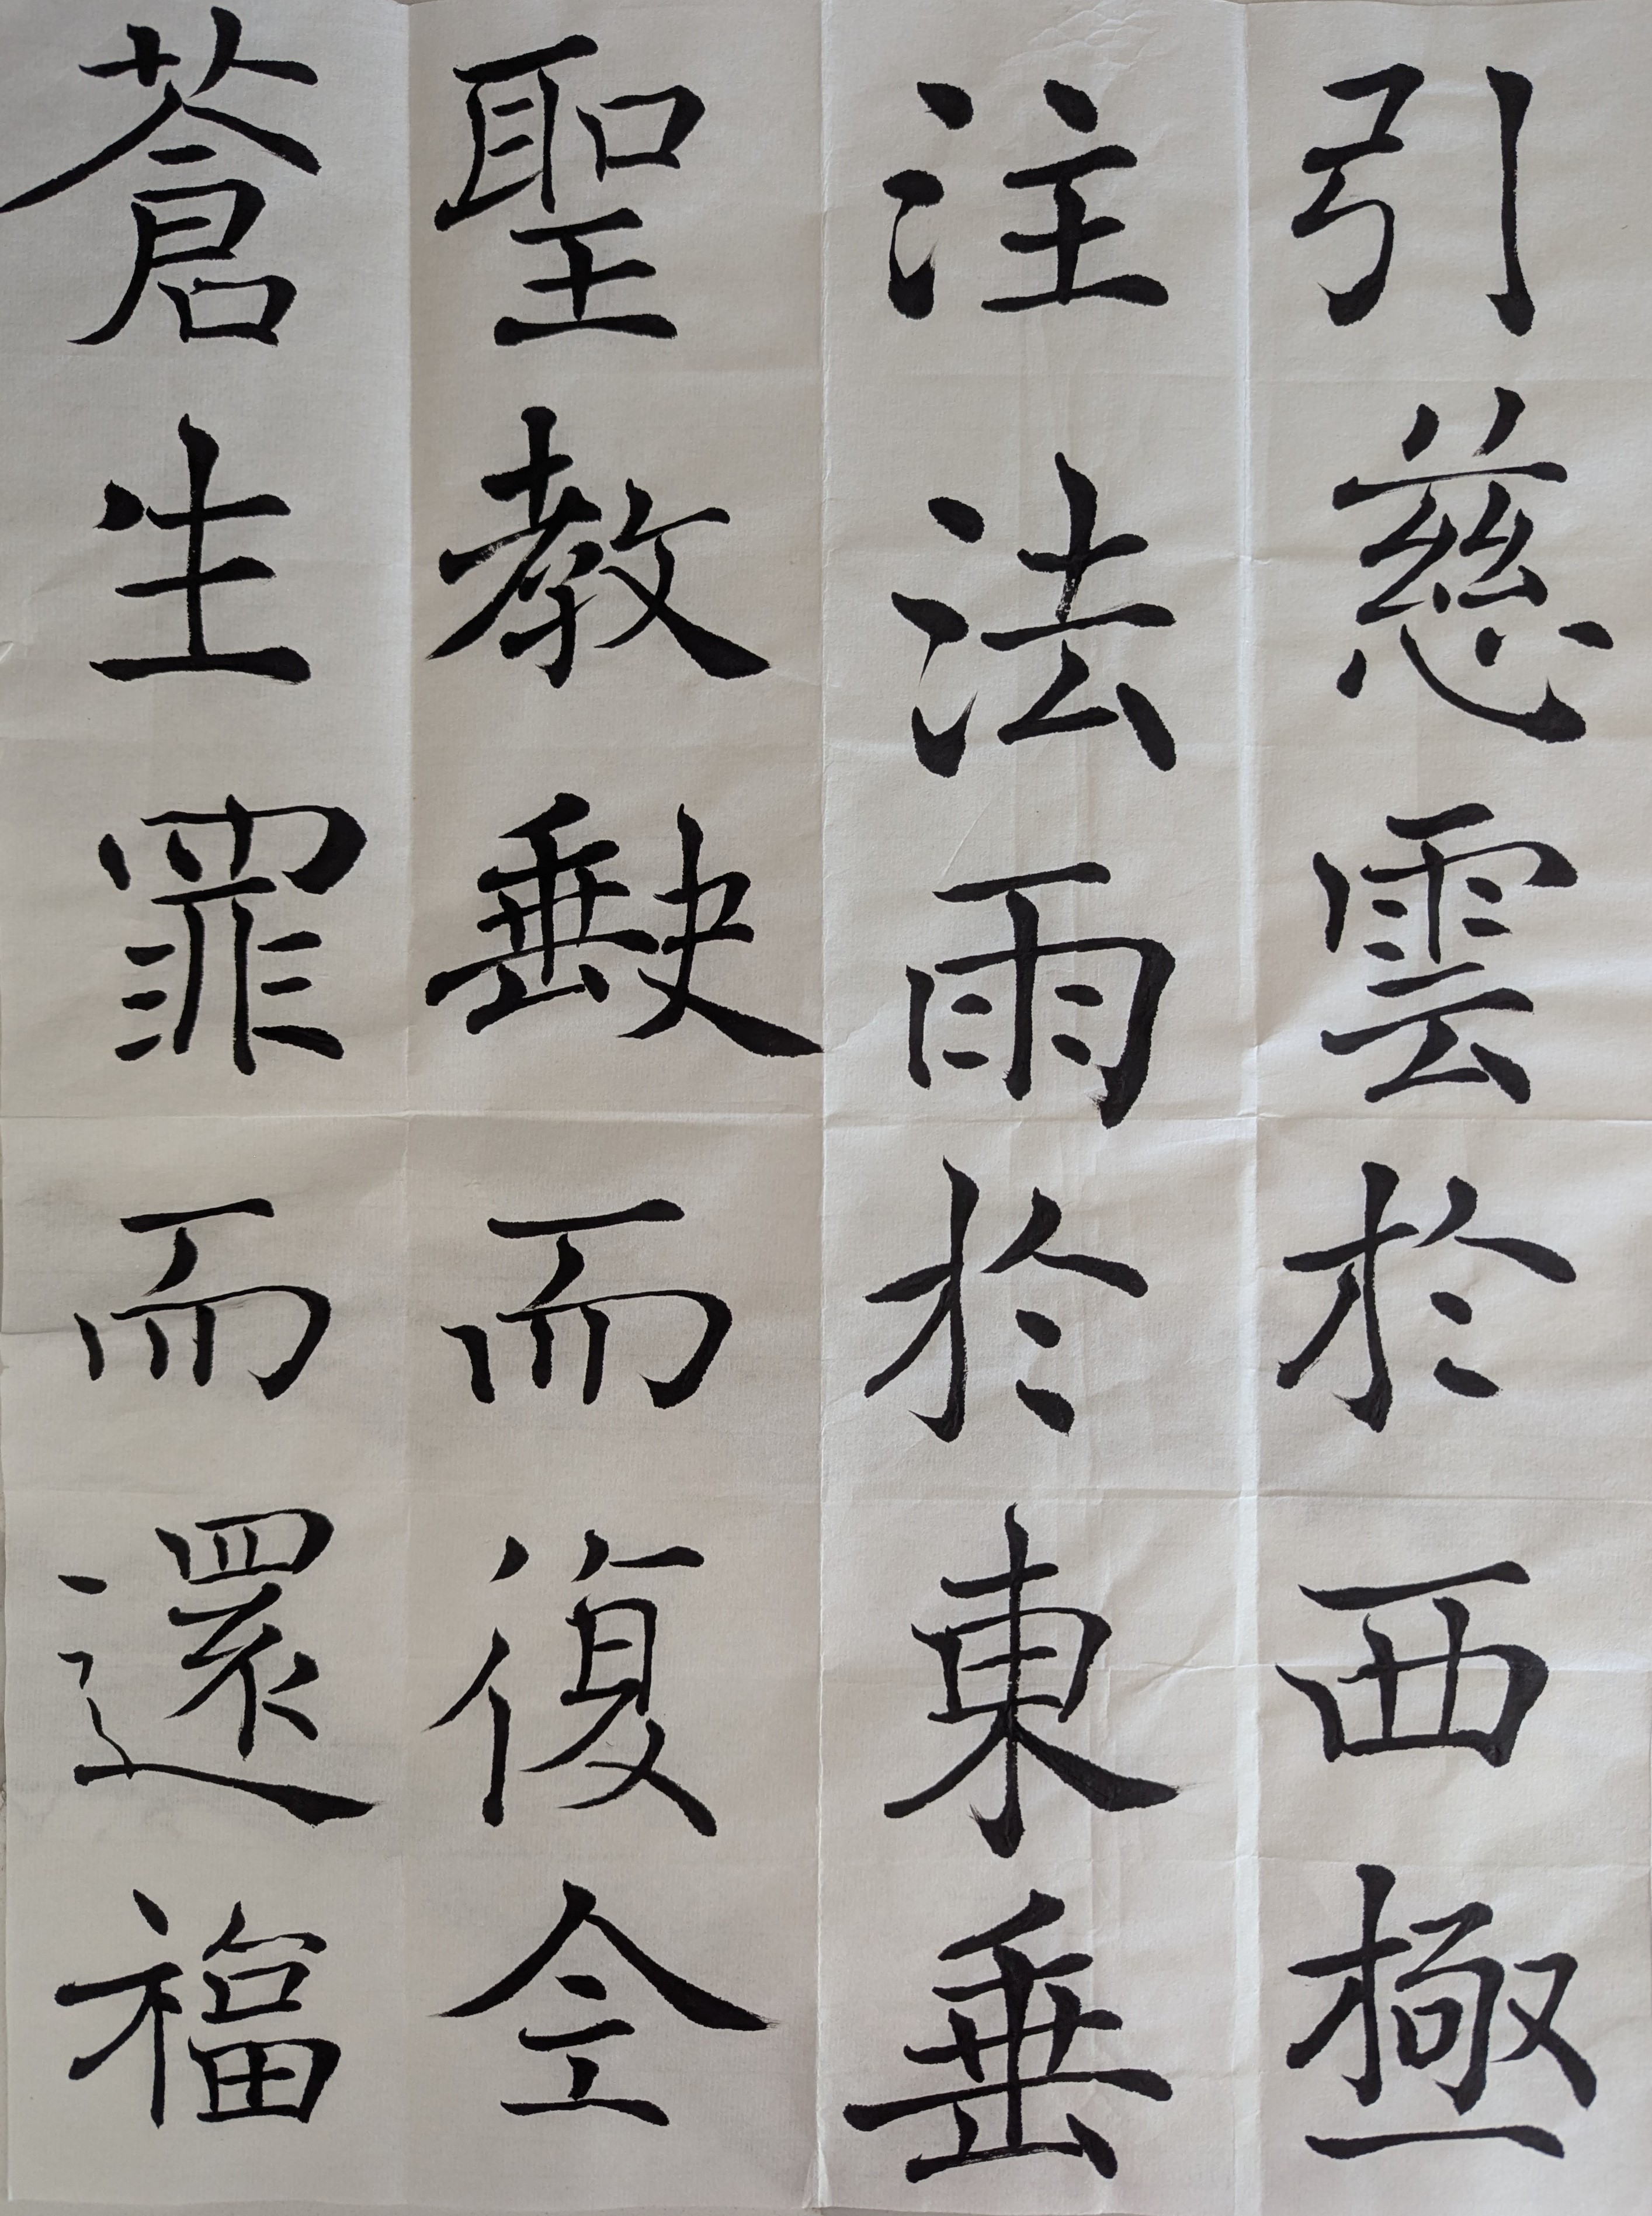 引慈雲於西極
注法雨於東垂
聖教缺而復全
蒼生罪而還福